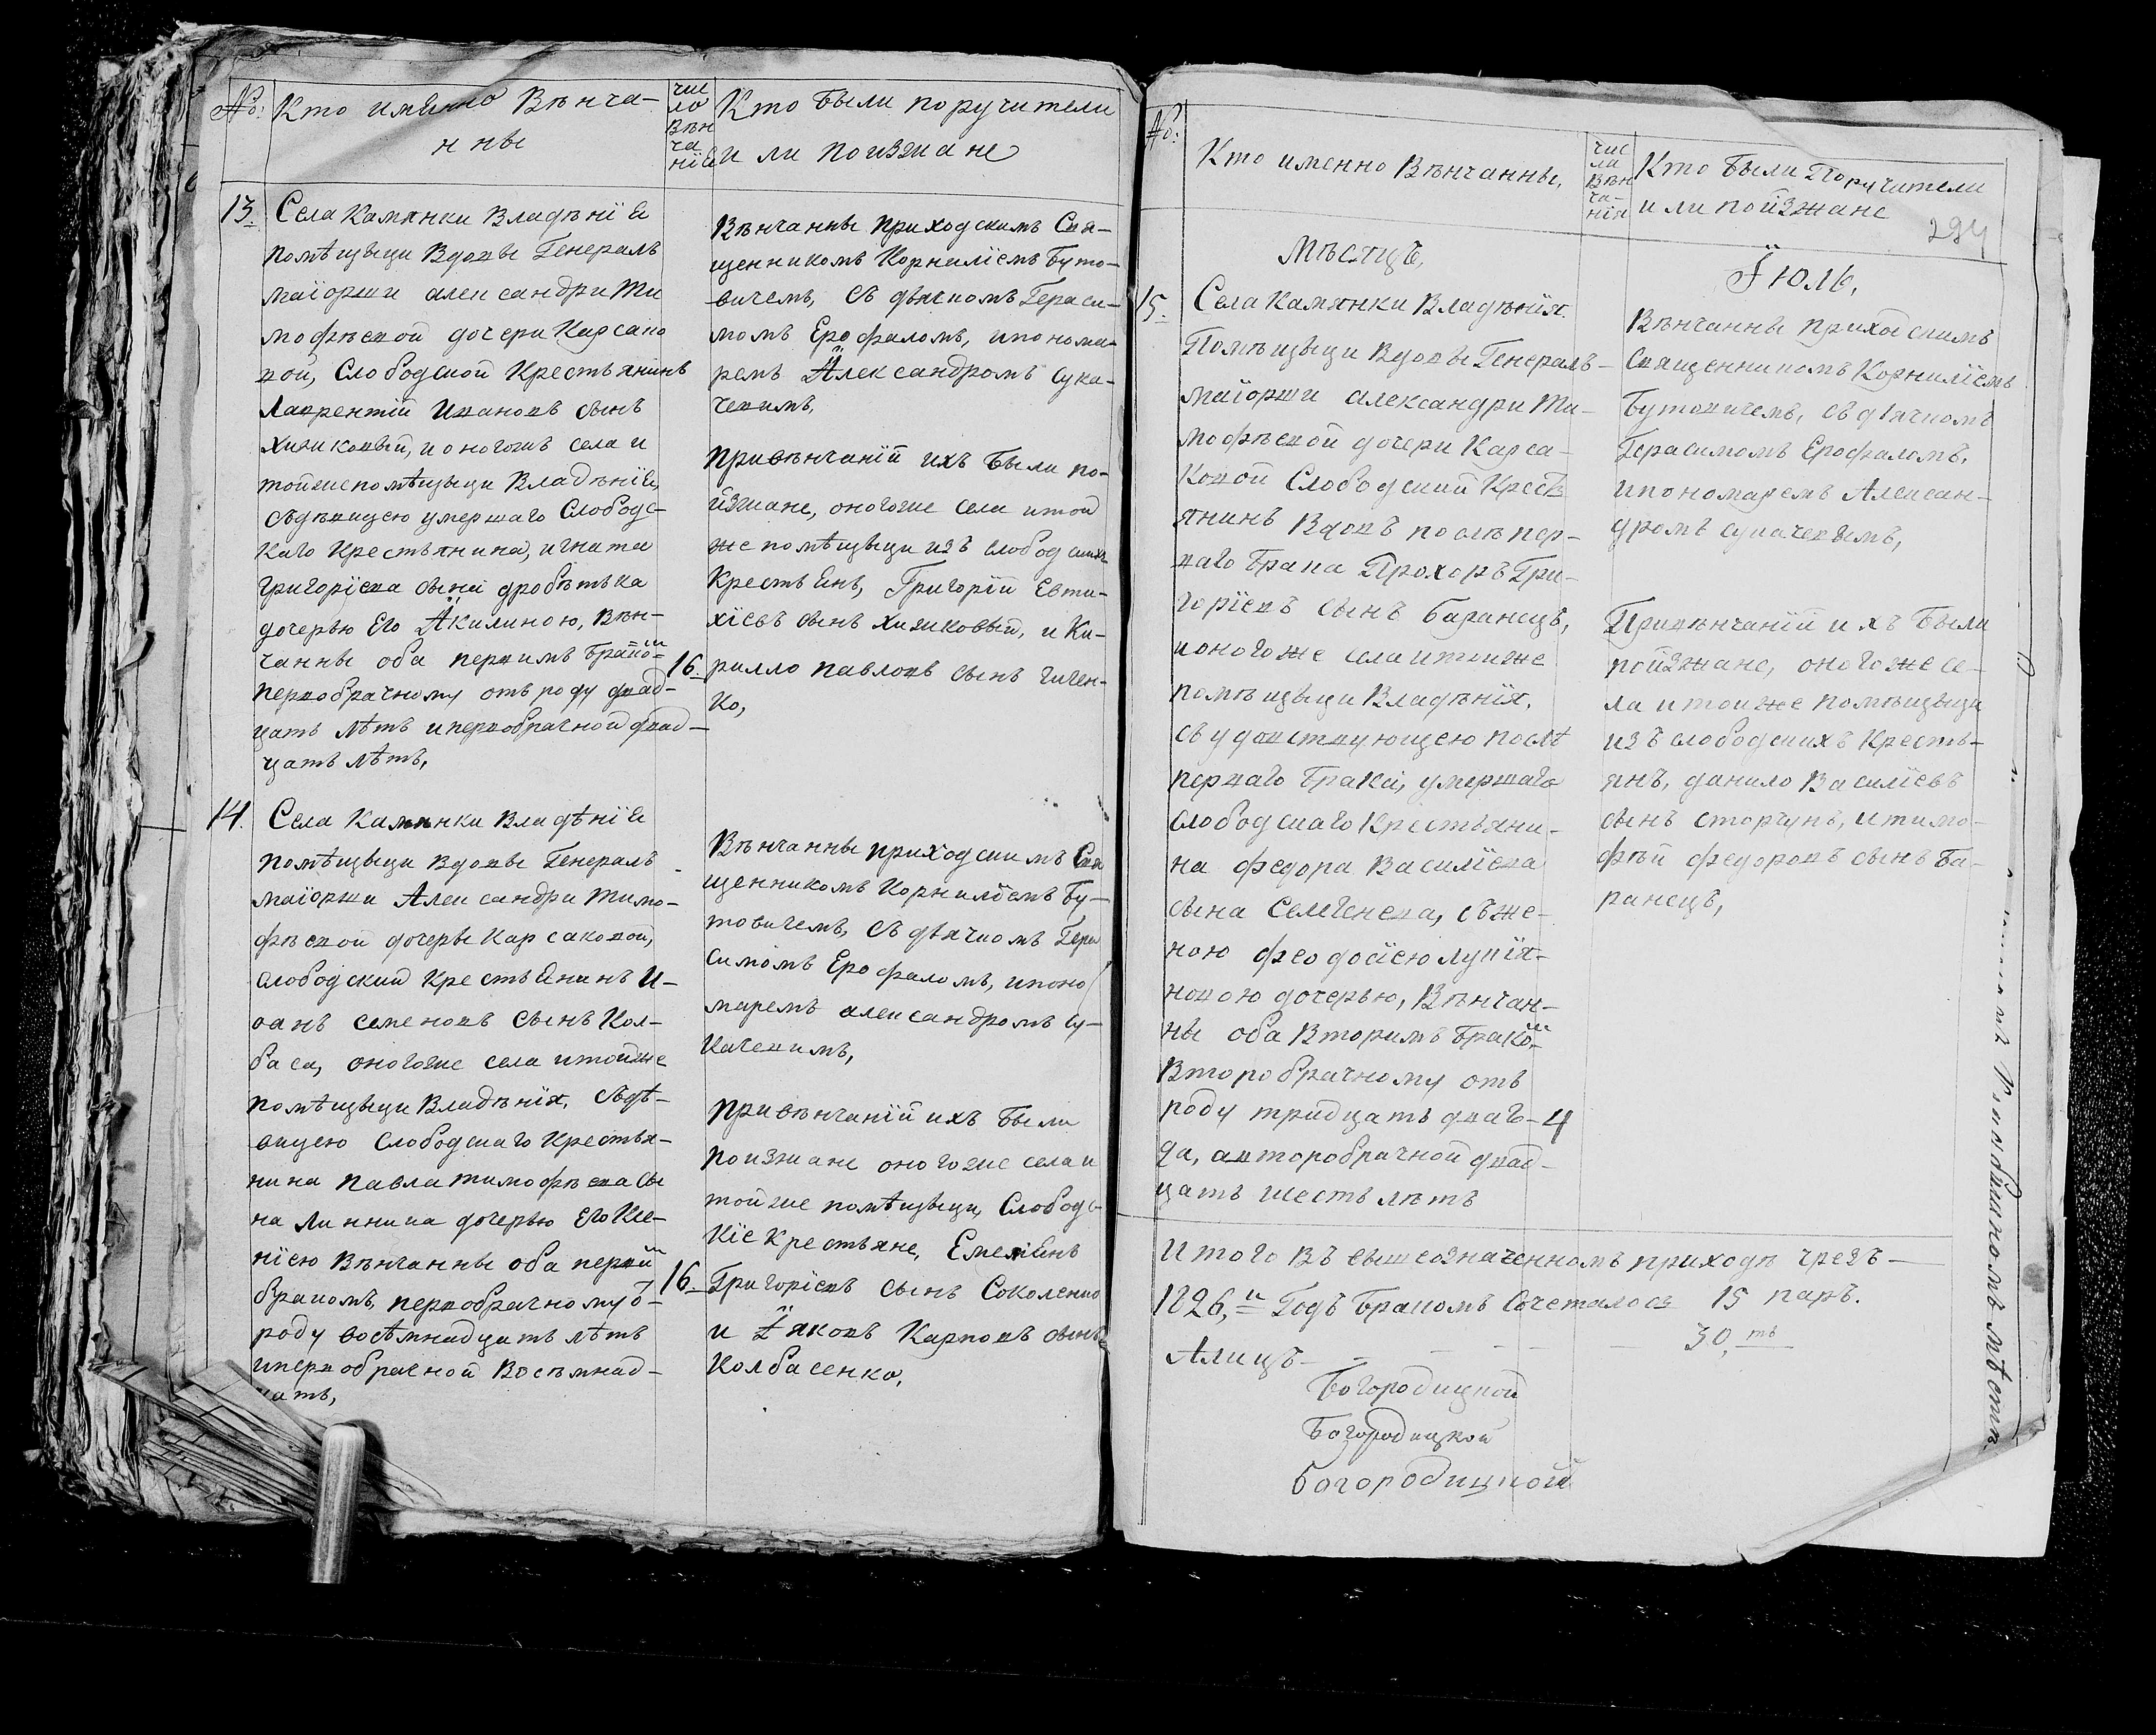 №: Кто имянно Вѣнча-
нны
чис
ло
Вѣн
ча
нїе
Кто были поручители
и ли поизжане
13. Села Камянки Владѣнїе
помѣщыци Вдовы Генералъ
маїорши александри Ти
мофѣевой дочери Карсако
вой, Слободской Крестьянинъ
Лаврентїй Ивановъ сынъ
Хижковый, и оногожъ села и
тойже помѣщыци Владѣнїе,
съдѣвицею умершаго Слободс-
каго Крестьянина, игната
григорїева сына дробѣтька
дочерью Его Акилиною, Вѣн-
чанны оба первимъ бракомъ
первобрачному отъ роду двад-
цать лѣтъ и первобрачной двад-
цать лѣтъ,
16.
Вѣнчанны приходскимъ Свя-
щенникомъ Корнилїемъ Буто-
вичемъ, съ дьякомъ Гераси-
момъ Ерофаломъ, ипонома-
ремъ Александромъ сука-
чевимъ,
привѣнчанїй ихъ были по-
изжане, оногоже села итой
же помѣщыци изъ слободскихъ
Крестьенъ, Григорїй Евти-
хїевъ сынъ Хижковый, и Ки-
рилло павловъ сынъ чичен-
ко,
14. Села Камянки Владѣнїе
помѣщыци Вдовы Генералъ
маїорши Александри Тимо-
фѣевой дочеры Карсаковой,
слободский Крестьенинъ И-
ванъ семеновъ сынъ Кол-
баса, оногоже села итойже
помѣщыци Владѣнїя, съдѣ-
вицею Слободскаго Крестья-
нина павла тимофѣева сы
на Линника дочерью Его Ксе-
нїею Вѣнчанны оба первимъ
бракомъ, первобрачному о-
роду восѣмнадцать лѣтъ
и первобрачной Восѣмнад-
цать,
16.
Вѣнчанны приходскимъ Свя
щенникомъ Корнилїемъ Бу-
товичемъ, съ дьячкомъ Гера
симомъ Ерофаломъ, ипоно
маремъ александромъ су-
качевимъ,
привѣнчанїй ихъ были
поизжане оногоже села и
тойже помѣщыци, Слободс-
кїе Крестьяне, Емельенъ
Григорїевъ сынъ Соколенко
и Яковъ Карповъ сынъ
Колбасенко,
№:
Кто именно Вѣнчанны,
чис
ла
Вѣн
ча-
нїя
Кто были Поручители
и ли пойзжане
294
Мѣсяцъ,
Їюль,
15. Села Камянки Владѣнїя
Помѣщыци Вдовы Генералъ-
маїорши александри Ти-
мофѣевой дочери Карса-
ковой Слободский Кресть
янинъ Вдовъ послѣ пер-
ваго брака Прохоръ Гри-
горїевъ сынъ баранецъ,
и оногоже села итоиже
помѣщыци Владѣнїя,
съ удовствующею послѣ
перваго брака, умершаго
слободскаго Крестьяни-
на федора Василїева
сына Семченка, съже-
ною феодосїею лукїя-
новою дочерью, Вѣнчан-
ны оба Вторимъ бракомъ
Второбрачному отъ
роду тридцать два го-
да, авторобрачной двад-
цать шесть лѣтъ
4
Вѣнчанны приходскимъ
Священникомъ Корнилїемъ
Бутовичемъ, съ дьячкомъ
Герасимомъ Ерофаломъ,
ипономаремъ Алексан-
дромъ сукачевимъ,
Привѣнчанїй ихъ были
пойзжане, оногоже се-
ла итоиже помѣщыци
изъ слободскихъ Кресть-
янъ, данило Василїевъ
сынъ сторчунъ, и тимо-
фѣй федоровъ сынъ Ба-
ранецъ,
Итого Въ вышеозначенномъ приходѣ чрезъ
1826,й Годъ бракомъ Сочеталось 15 паръ.
Алицъ - - - - 30,ть
Богородицкой
Богородицкой
богородицкой